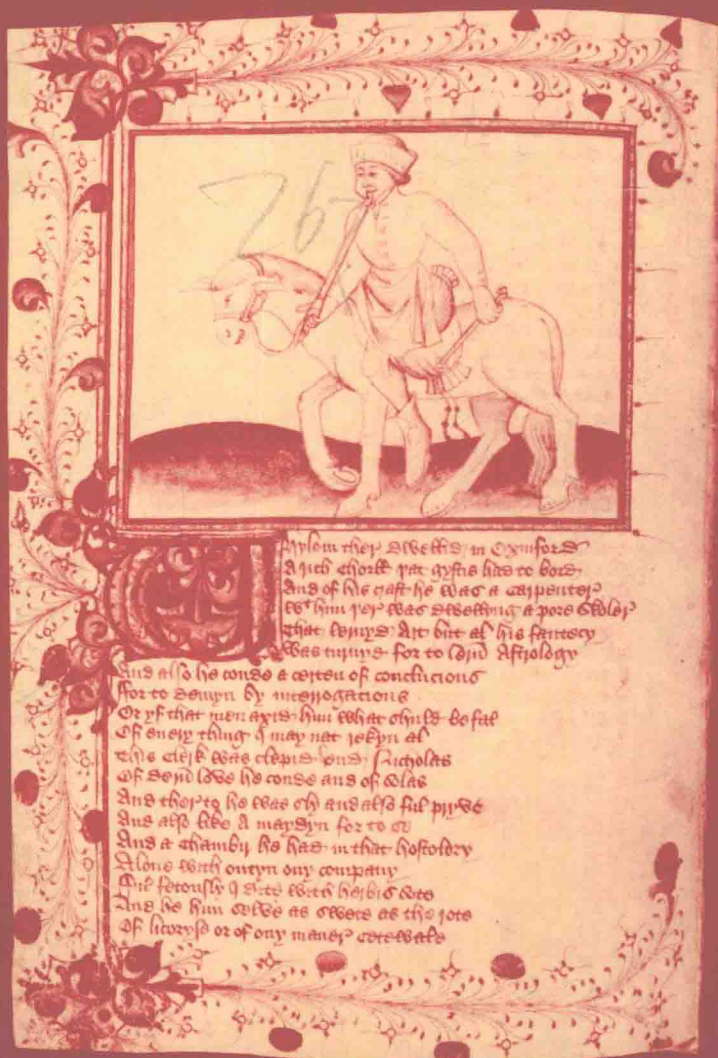 26
Whylom ther dwellid in Oxinford
A rich chorll þat gystis had to bord
And of his craft he was a carpenter
Wt him þer was dwelling a pore skoler
That lernyd Art but al his fantesy
Was turnyd for to lern Astrology
And also he conde a certen of conclucions
For to demyn by interrogacions
Or yf that men axid him what shuld be fal
Of euery thing I may not rekyn al
This clerk was clepid Nicholas
Of dern love he conde and of solas
And therto he was sly and also ful pryve
And also like A maydyn for to se
And a chambir he had in that hostelery
Alone with outyn ony company
Ful fetously I dite with herbis sote
And he him selve as swete as the rote
Of licoryse or of ony maner cetewale